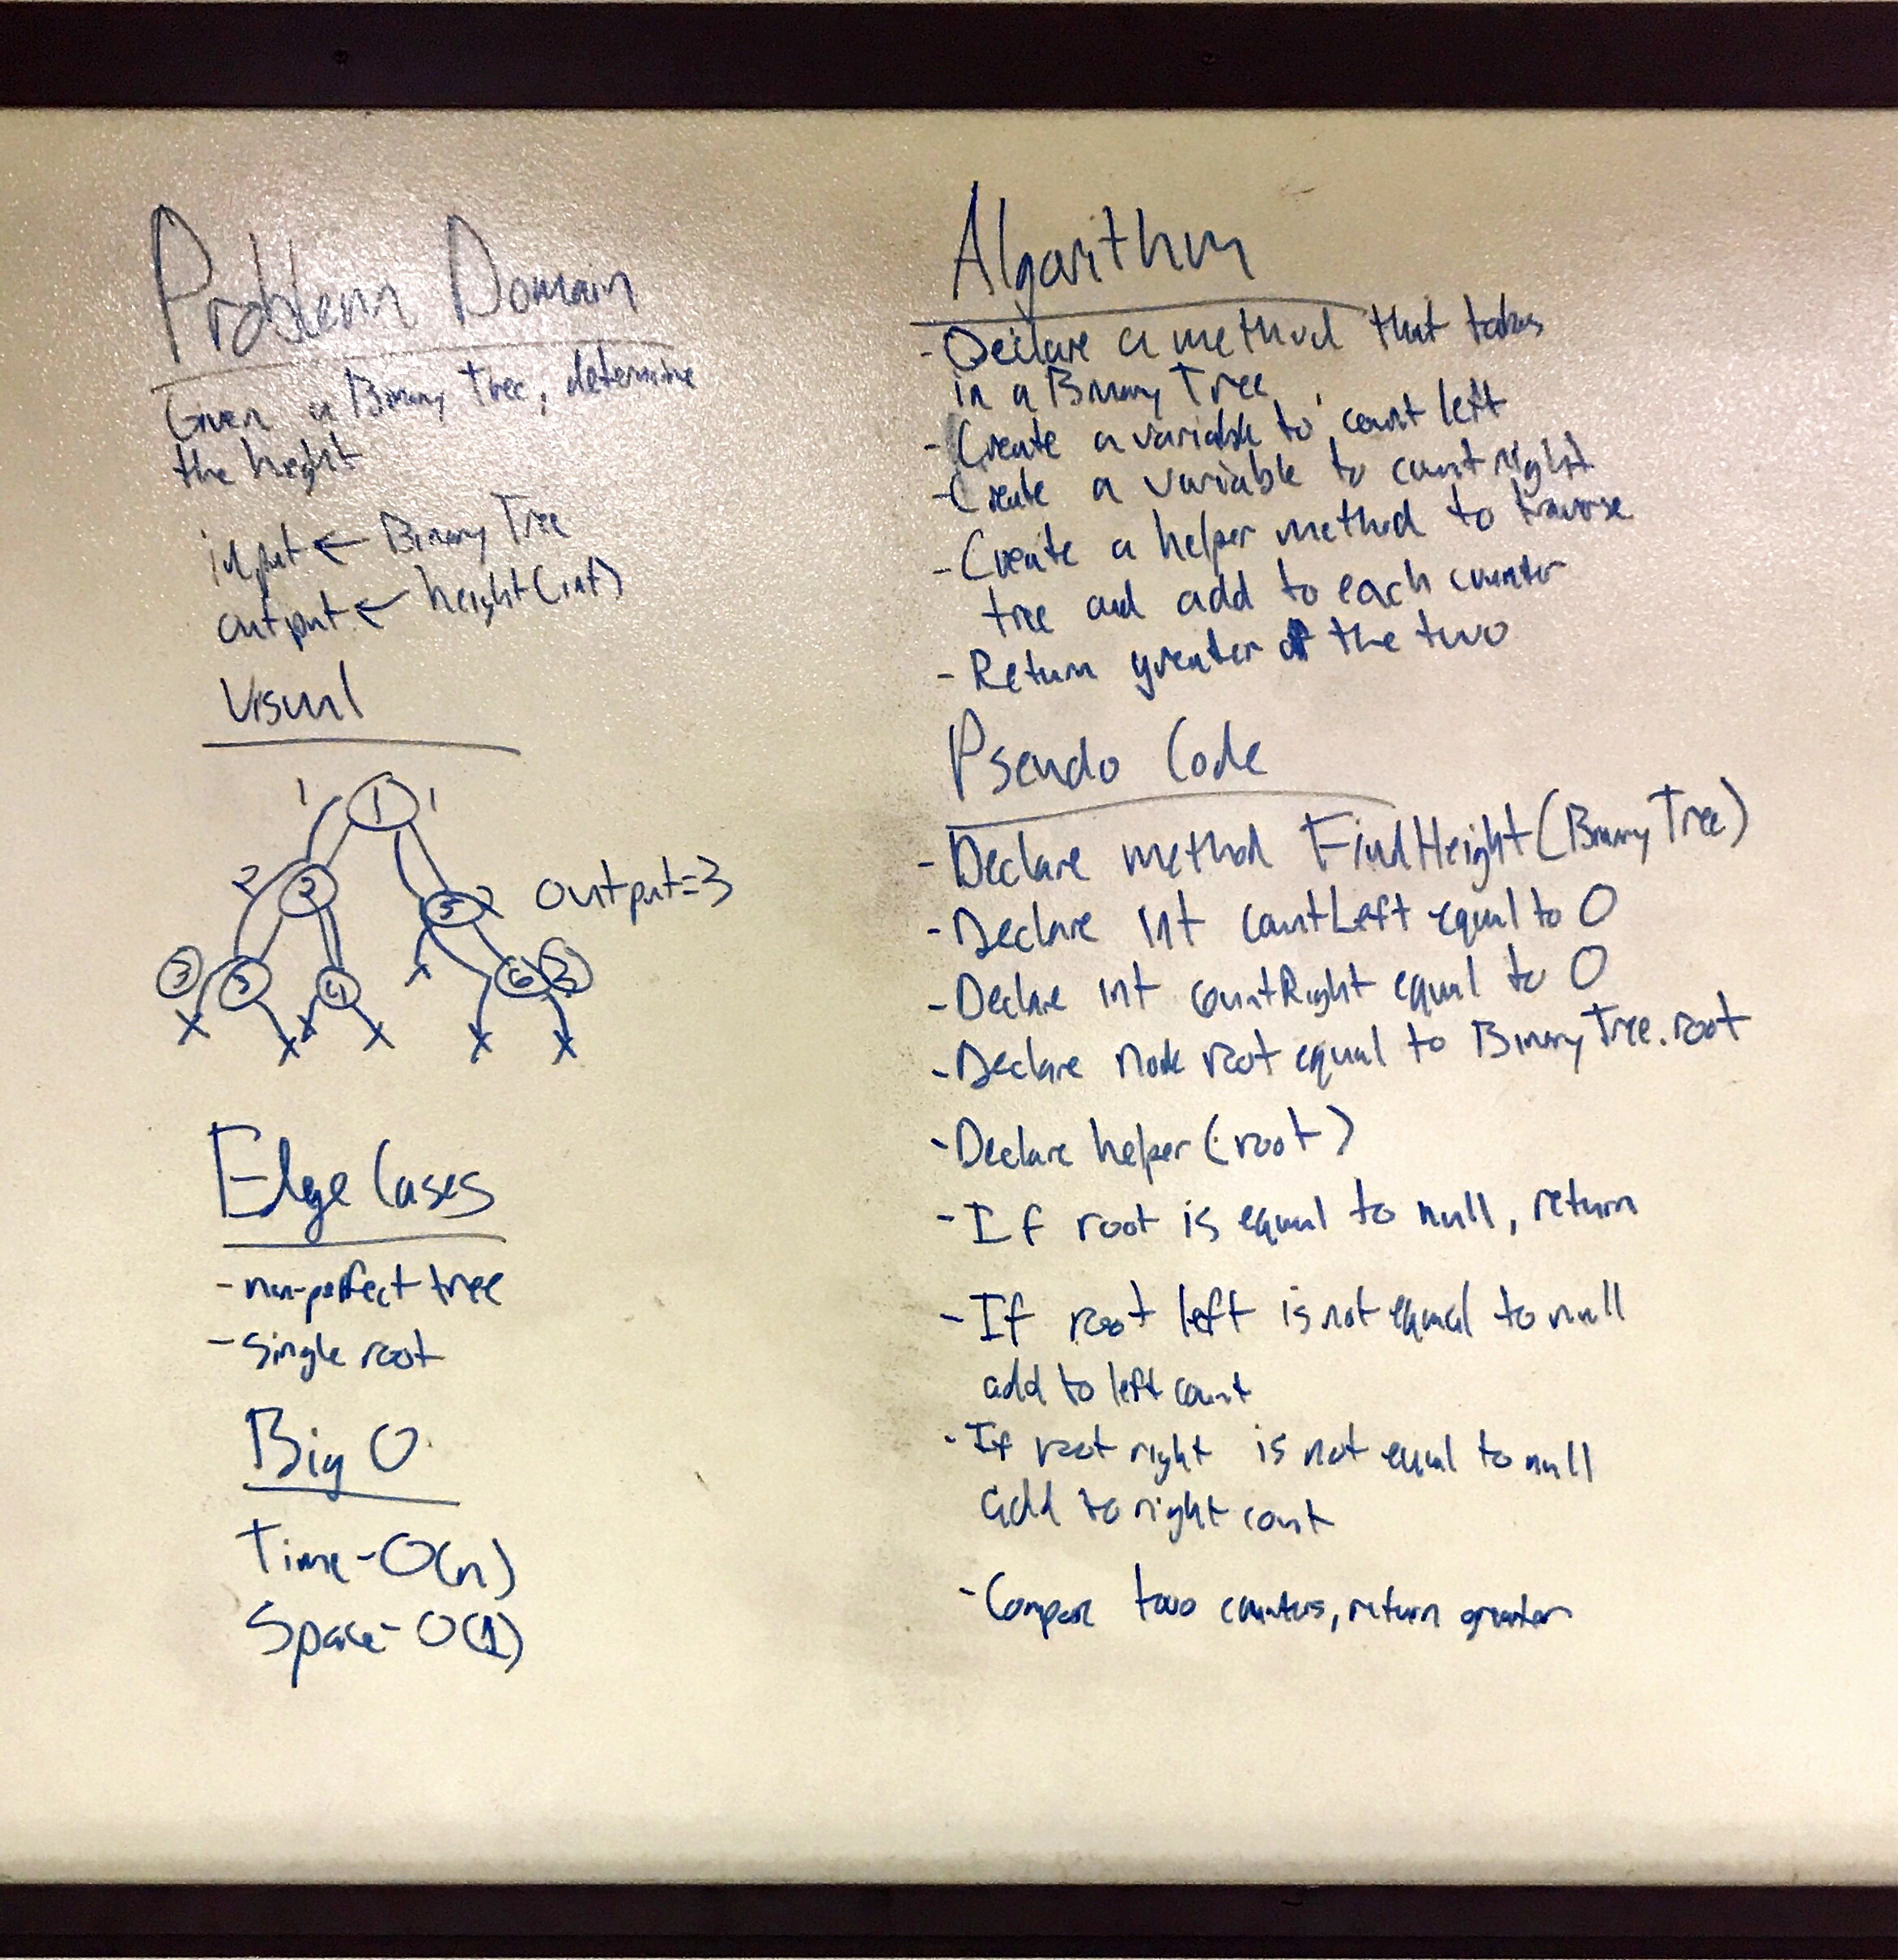 Problem Domain
Given a Binary Tree, determine
the height
input ← Binary Tree
output ← height(int)
Visual
1 1 1
2 2 5 2 output=3
3 3 4 6 3
x x x x x x x
Edge Cases
- non-perfect tree
- single root
Big O
Time - O(n)
Space - O(1)
Algorithm
- Declare a method that takes
in a Binary Tree
- Create a variable to count left
- Create a variable to count right
- Create a helper method to traverse
tree and add to each counter
- Return greater of the two
Pseudo Code
- Declare method FindHeight(Binary Tree)
- Declare int countLeft equal to 0
- Declare int countRight equal to 0
- Declare Node root equal to Binary Tree.root
- Declare helper(root)
- If root is equal to null, return
- If root left is not equal to null
add to left count
- If root right is not equal to null
add to right count
- Compare two counters, return greater